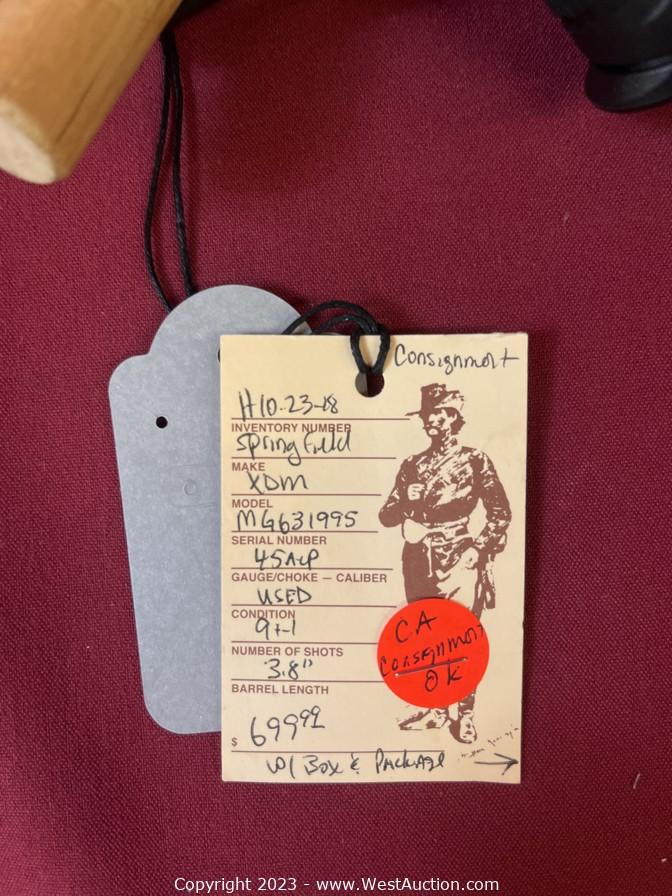 Consignment
H10-23-18
INVENTORY NUMBER
Springfield
MAKE
XDM
MODEL
MG631995
SERIAL NUMBER
45ACP
GAUGE/CHOKE — CALIBER
USED
CONDITION
9+1
NUMBER OF SHOTS
3.8"
BARREL LENGTH
$ 699.99
W/ Box & Package →
CA
Consignment
OK
Copyright 2023 - www.WestAuction.com